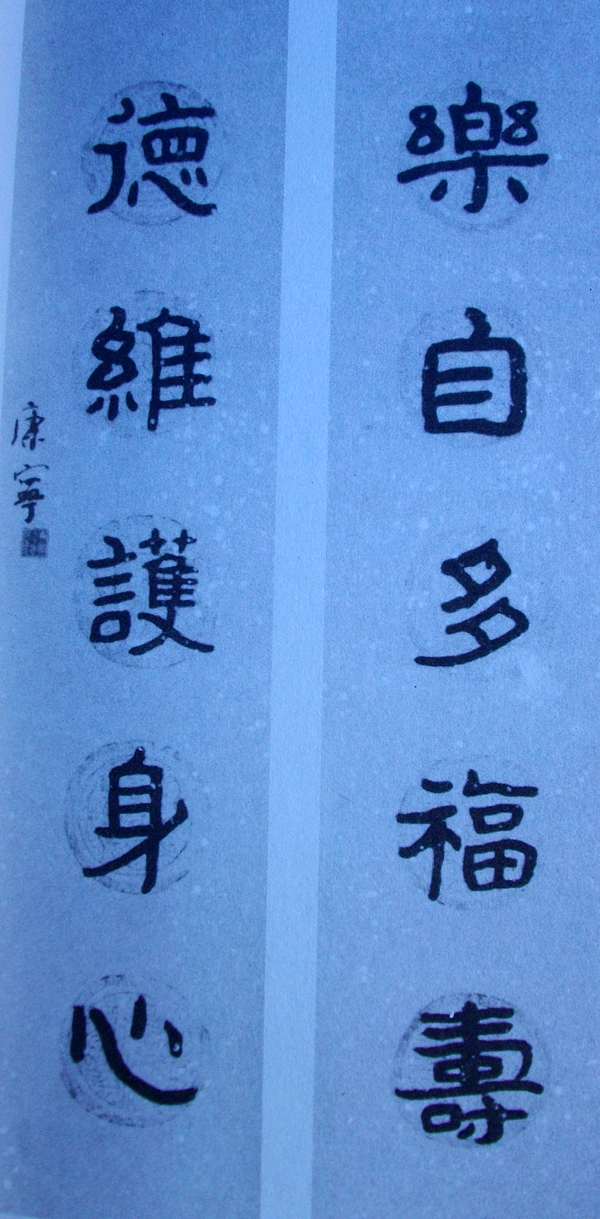 樂自多福壽
德維護身心
康寧